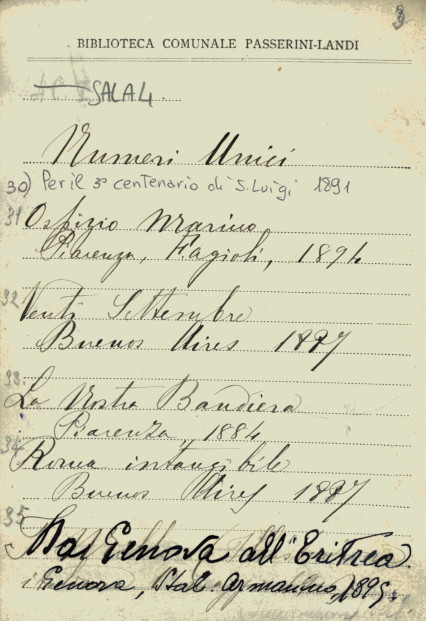 3
BIBLIOTECA COMUNALE PASSERINI-LANDI
SALA 4
Numeri Unici
30) Per il 3° centenario di S. Luigi 1891
31 Ospizio Marino
Piacenza, Fagioli, 1894
32 Venti Settembre
Buenos Aires 1897
33. La Nostra Bandiera
Piacenza, 1884
34 Roma intangibile
Buenos Aires 1897
35 Da Genova all'Eritrea.
Genova, Stab. Armanino, 1895.